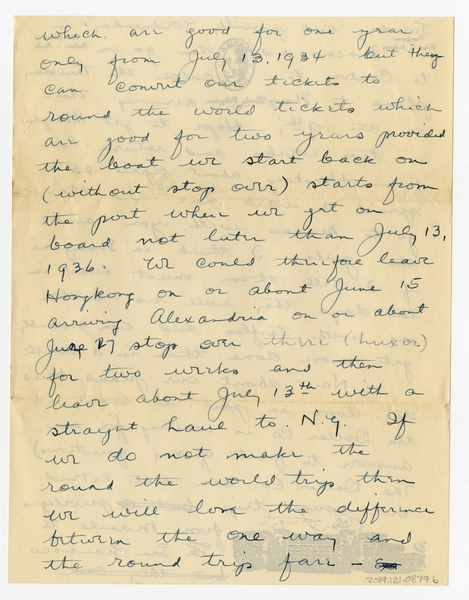 which are good for one year
only from July 13, 1934 but they
can convert our tickets to
round the world tickets which
are good for two years provided
the boat we start back on
(without stop over) starts from
the port where we get on
board not later than July 13,
1936. We could therefore leave
Hongkong on or about June 15
arriving Alexandria on or about
June 27 stop over there (Luxor)
for two weeks and then
leave about July 13th with a
straight haul to N.Y. If
we do not make the
round the world trip then
we will lose the difference
between the one way and
the round trip fare —
2019.121.08796